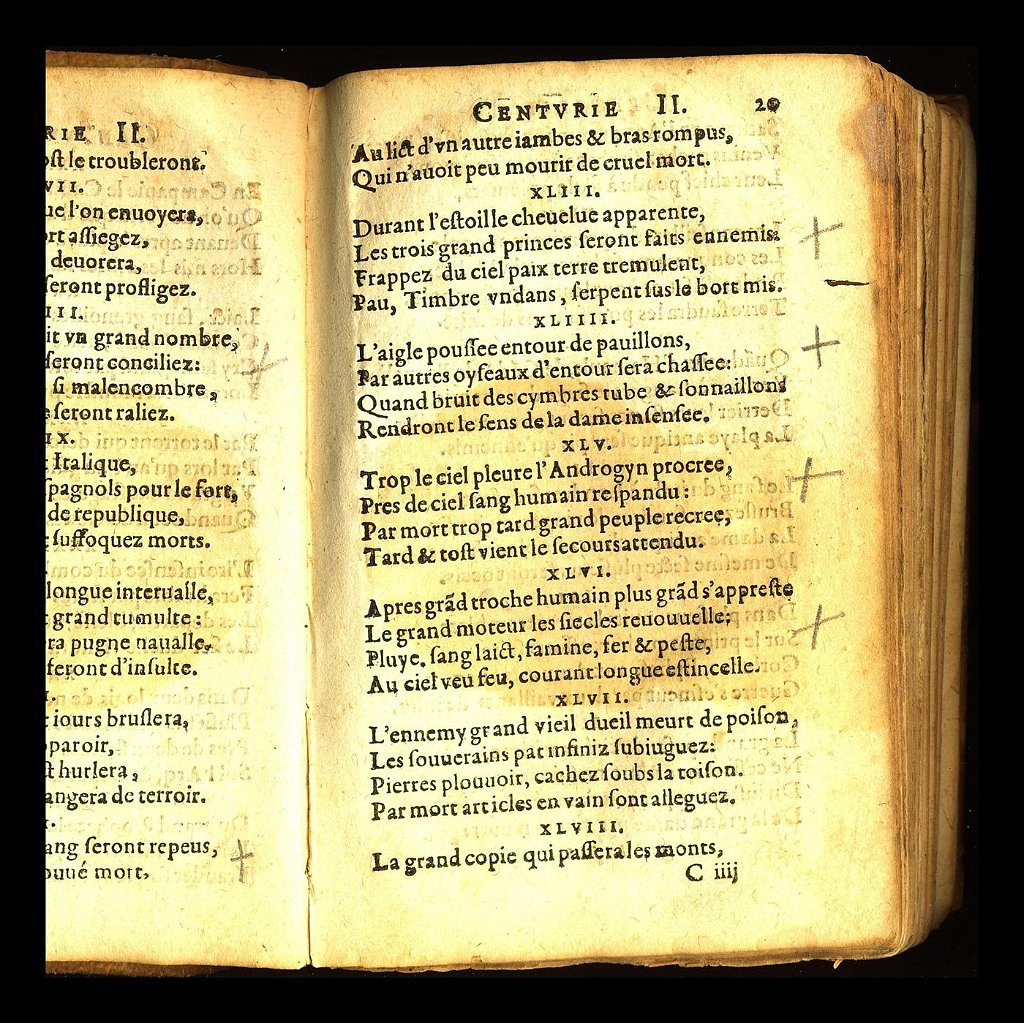 RIE II.
ost le troubleront.
VII.
ue l'on enuoyera,
ort assiegez,
deuorera,
seront profligez.
III.
it vn grand nombre,
seront conciliez:
si malencombre,
seront raliez.
IX.
Italique,
spagnols pour le fort,
de republique,
suffoquez morts.
longue interualle,
grand tumulte:
ra pugne naualle,
seront d'insulte.
iours bruslera,
paroir,
st hurlera,
angera de terroir.
ang seront repeus,
ouué mort,
CENTVRIE II. 20
Au lict d'vn autre iambes & bras rompus,
Qui n'auoit peu mourir de cruel mort.
XLIII.
Durant l'estoille cheuelue apparente,
Les trois grand princes seront faits ennemis:
Frappez du ciel paix terre tremulent,
Pau, Timbre vndans, serpent sus le bort mis.
XLIIII.
L'aigle poussee entour de pauillons,
Par autres oyseaux d'entour sera chassee:
Quand bruit des cymbres tube & sonnaillons
Rendront le sens de la dame insensee.
XLV.
Trop le ciel pleure l'Androgyn procree,
Pres de ciel sang humain respandu:
Par mort trop tard grand peuple recree,
Tard & tost vient le secours attendu.
XLVI.
Apres grãd troche humain plus grãd s'appreste
Le grand moteur les siecles renouuelle:
Pluye, sang laict, famine, fer & peste,
Au ciel veu feu, courant longue estincelle.
XLVII.
L'ennemy grand vieil dueil meurt de poison,
Les souuerains par infiniz subiuguez:
Pierres plouuoir, cachez soubs la toison.
Par mort articles en vain sont alleguez.
XLVIII.
La grand copie qui passera les monts,
C iiij